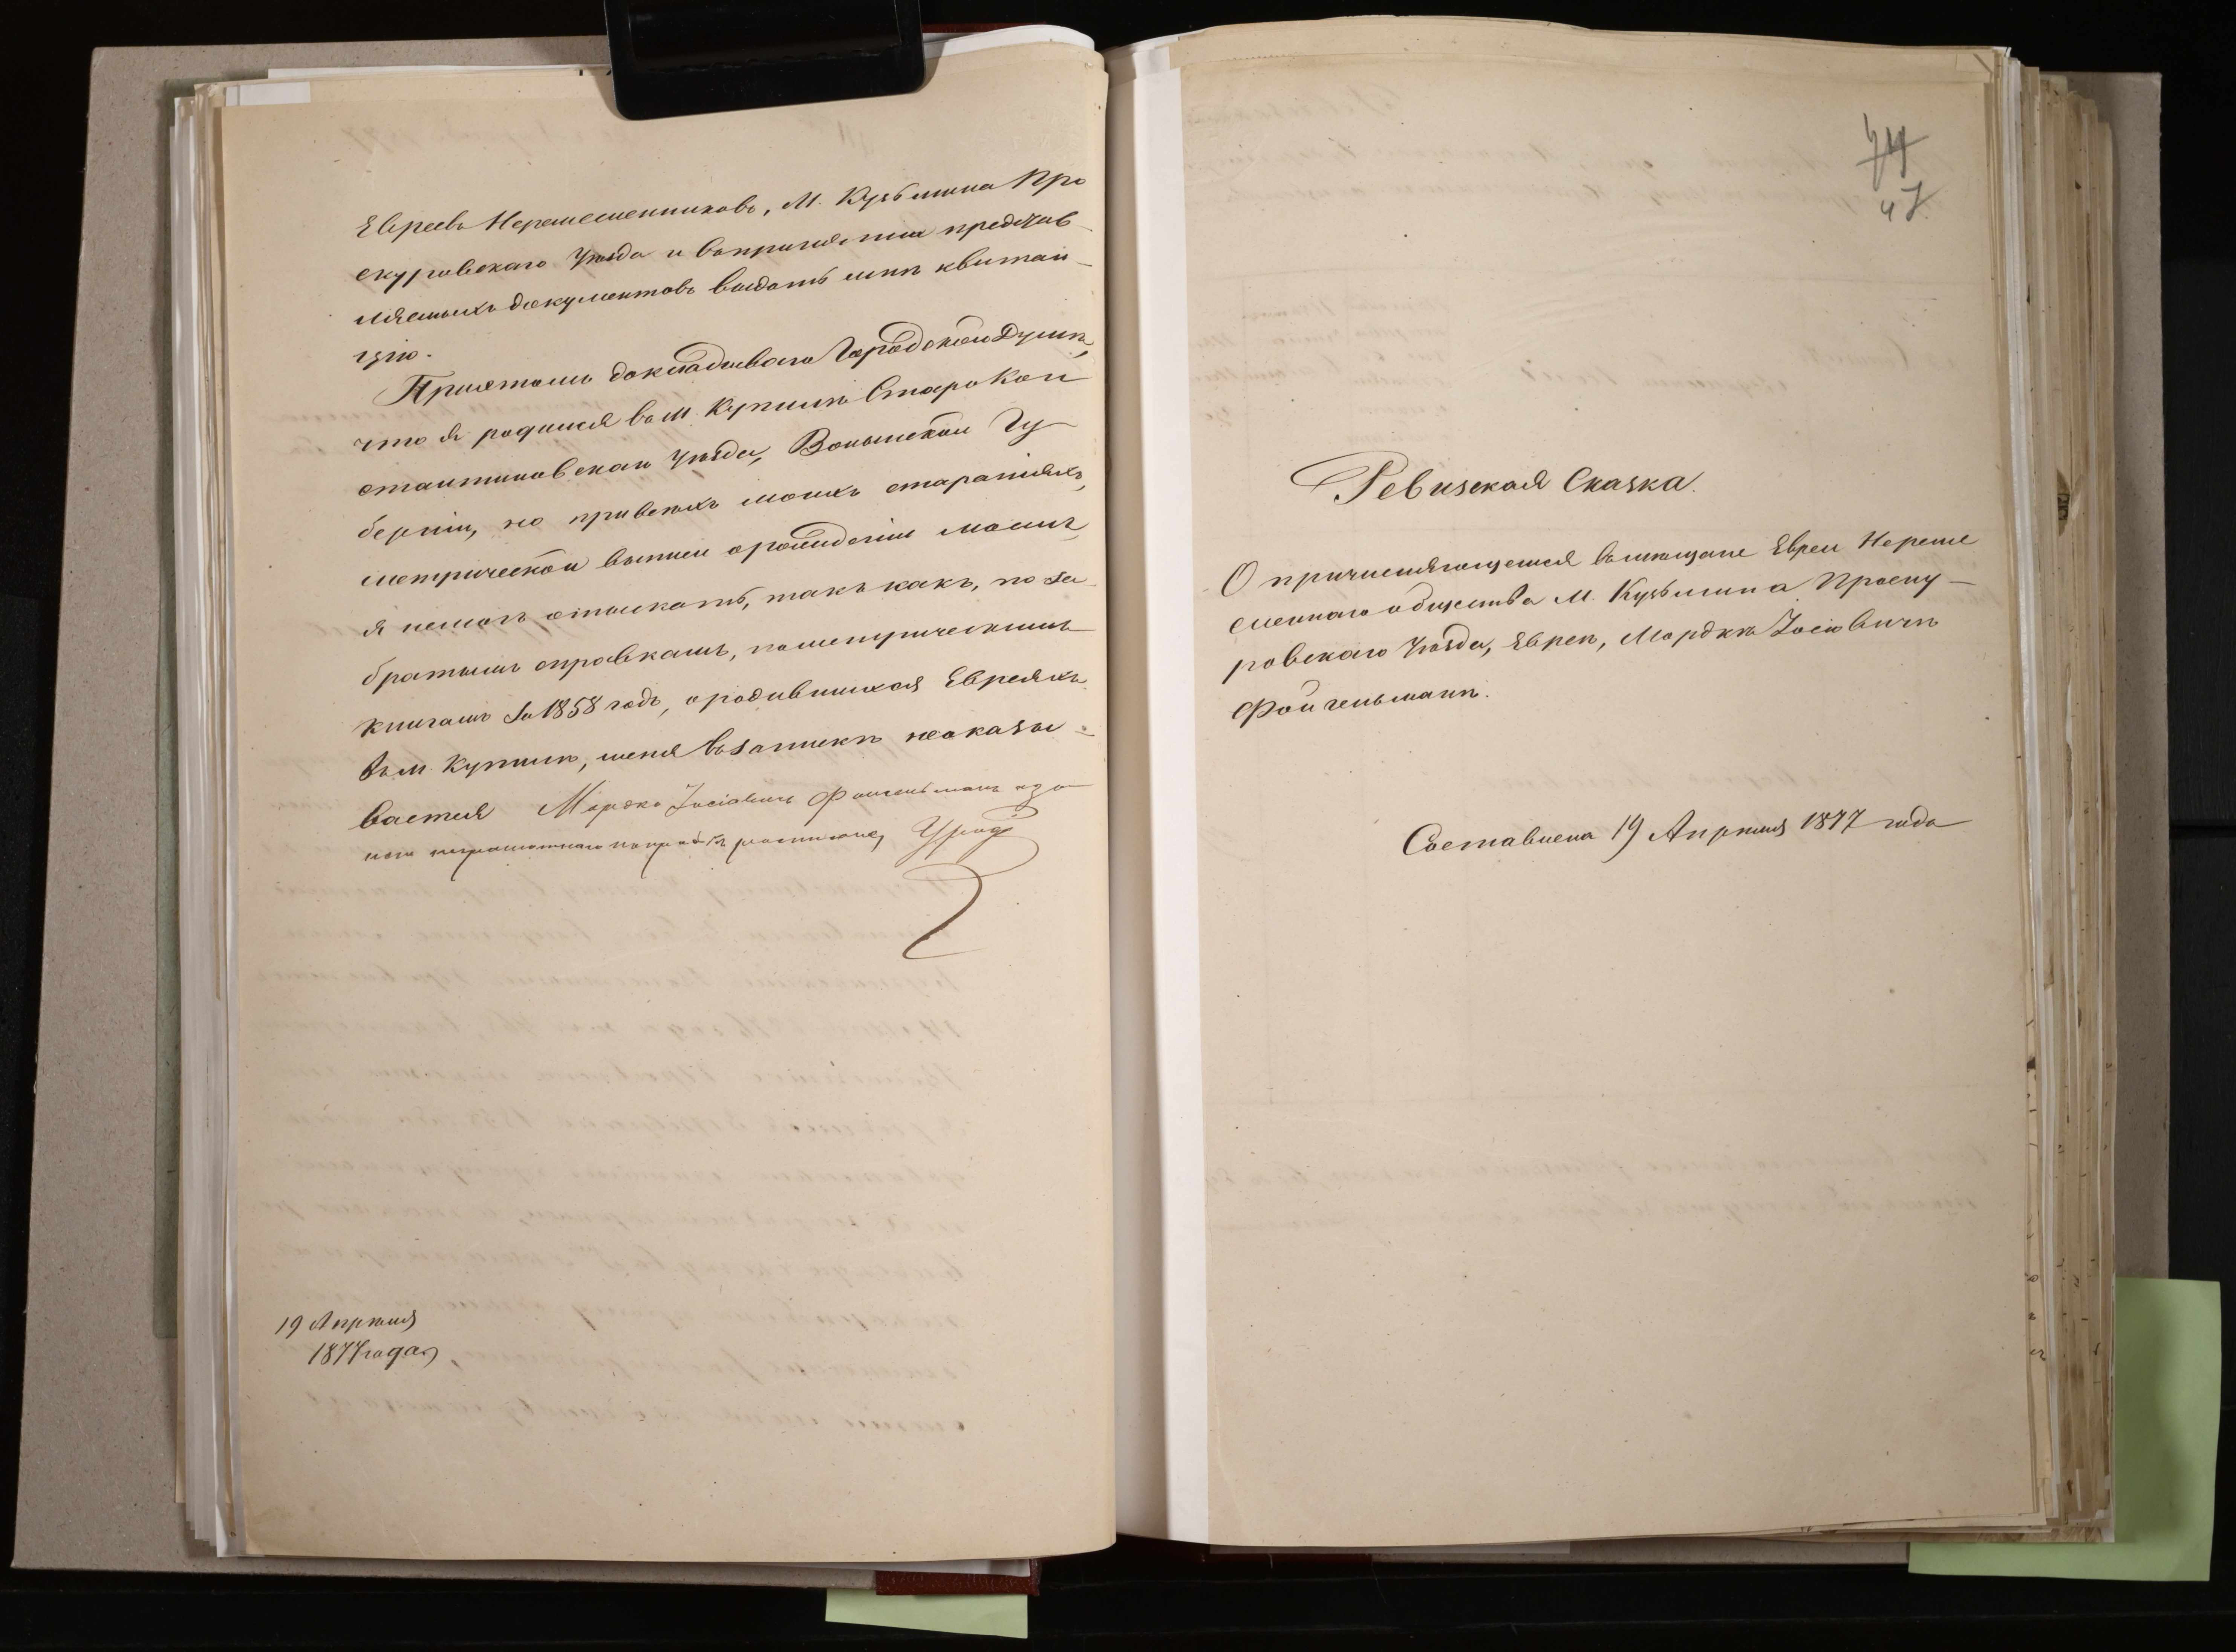 Евреевъ Неремесленниковъ, М. Кузьмина Про
скуровскаго Уѣзда и вопринятіи представ
ляемыхъ документовъ выдать мнѣ квитан-
цію.
Приэтомъ докладываю Городской Думѣ,
что я родился вом. Купилѣ Старо Кон
стантиновскаго Уѣзда, Волынской Гу
берніи, но привсѣхъ моихъ стараніяхъ,
метрической выписи орожденіи моемъ
я немогъ отыскать, такъ какъ, по за
братымъ справкамъ, пометрическимъ
книгамъ за 1858 годъ, ородившихся Евреяхъ
въ м. Купилѣ, меня возапискѣ неоказы-
вается Мордко Іосіовичъ Фойгельманъ аза
него неграмотнаго
19 Апрѣля
1877 года
74
47
Ревизская Сказка.
О причисляющемся вомѣщане Евреи Нереме
сленнаго общества М. Кузьмина Проску-
ровскаго Уѣзда, Евреѣ, Мордкѣ Іосіовичѣ
Фойгельманѣ.
Составлена 19 Апрѣля 1877 года